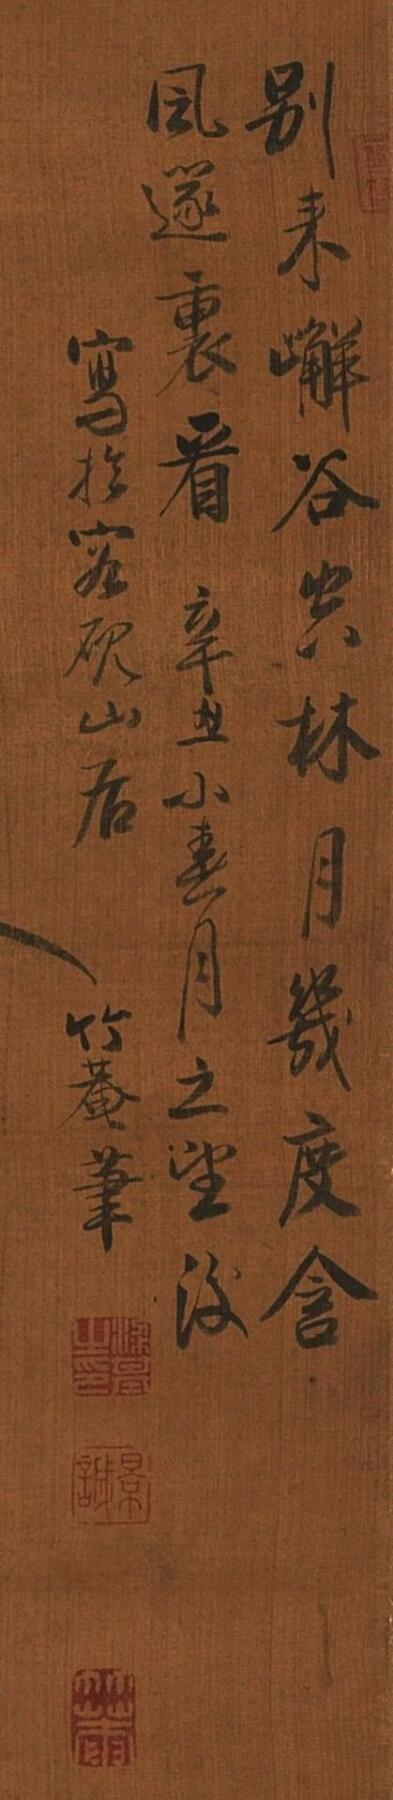 別來嶰谷空林月幾度含
風邃裏看　辛丑小春月之望後
寫於容硯山居　竹菴筆